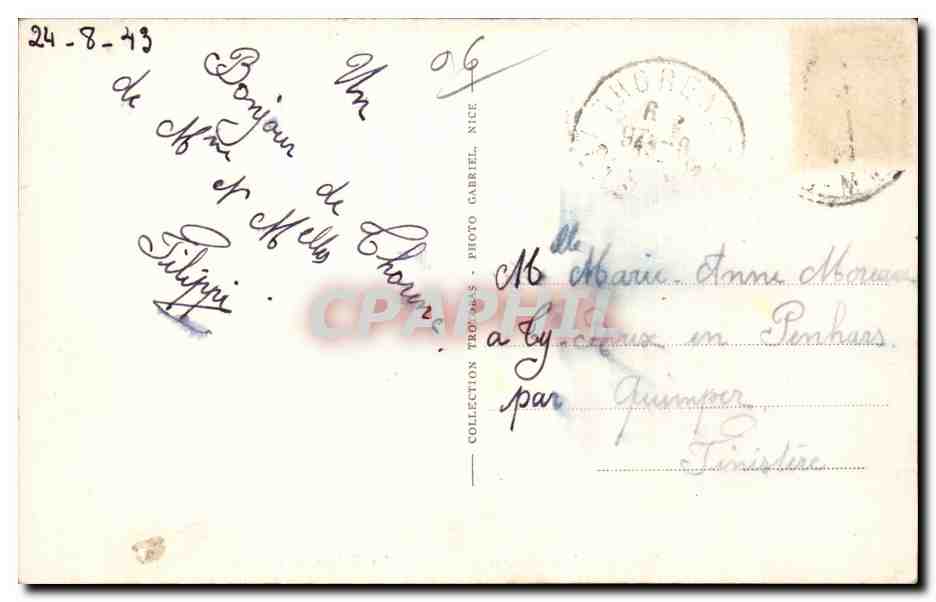 24-8-43
06
Un
Bonjour
de Thorenc.
de Mme
et Melle
Filippi
COLLECTION TROMOBAS - PHOTO GABRIEL, NICE
THORENC
Melle Marie-Anne Moreau
a Ty- en Penhars
par Quimper
Finistère
CPAPHIL